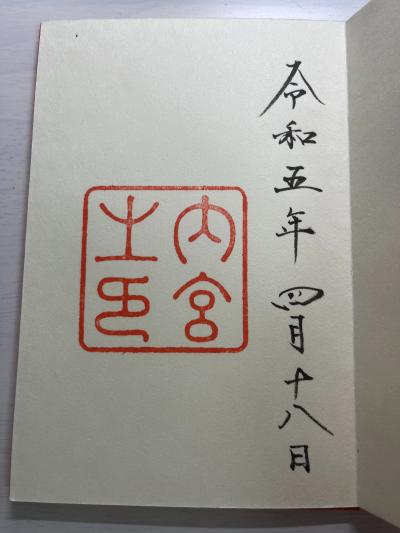 令和五年 四月十八日
内宮
之印